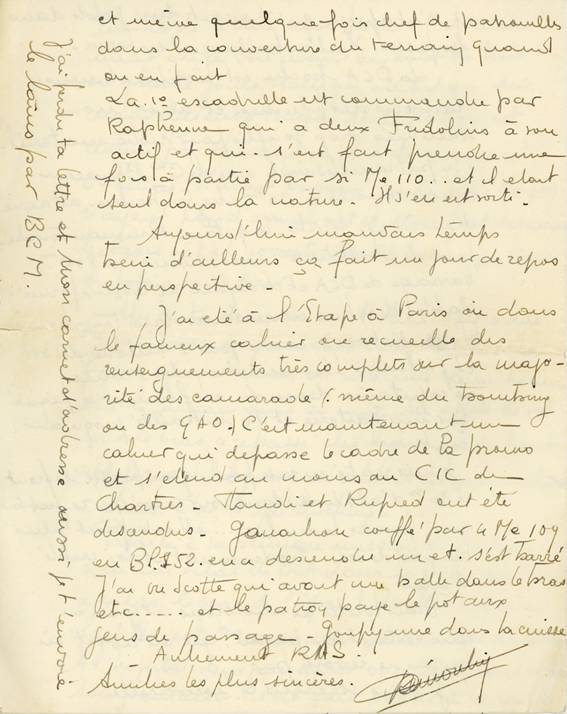 et même quelquefois chef de patrouilles
dans la couverture du terrain quand
on en fait
La 1º escadrille est commandée par
Raphenne qui a deux Fridolins à son
actif et qui s'est fait prendre une
fois à partie par si Me 110.. et il etait
seul dans la nature. Il s'en est sorti.
Aujourd'hui mauvais temps
beni d'ailleurs ça fait un jour de repos
en perspective.
J'ai été à l'Etape à Paris où dans
le fameux cahier on recueille des
renseignements très complets sur la majo-
rité des camarade (même du
ou des GAO.) C'est maintenant un
cahier qui depasse le cadre de la promo
et s'etend au moins au CIC de
Chartres - et ont été
descendus - coiffé par 4 Me 109
en en a descendu un et s'est barré
J'ai vu Scotte qui avait une balle dans le bras
etc..... et le patron paye le pot aux
gens de passage - une dans la cuisse
Autrement RAS.
Amitiés les plus sincères.
J'ai perdu ta lettre et mon carnet d'adresse aussi je t'envoie
le par BCM.